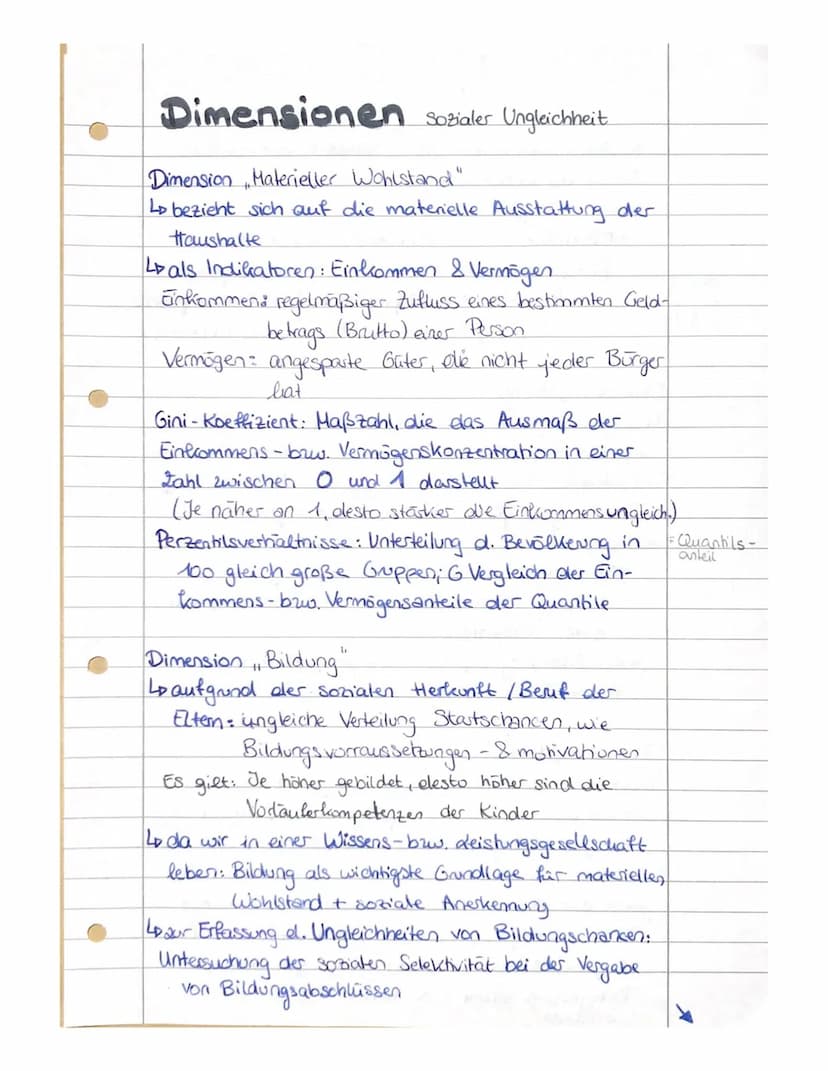 Dimensionen sozialer Ungleichheit
Dimension „Materieller Wohlstand"
↳ bezieht sich auf die materielle Ausstattung der
Haushalte
↳ als Indikatoren: Einkommen & Vermögen
Einkommen: regelmäßiger Zufluss eines bestimmten Geld-
betrags (Brutto) einer Person
Vermögen: angesparte Güter, die nicht jeder Bürger
hat
Gini-Koeffizient: Maßzahl, die das Ausmaß der
Einkommens- bzw. Vermögenskonzentration in einer
Zahl zwischen 0 und 1 darstellt
(Je näher an 1, desto stärker die Einkommensungleich.)
Perzentilsverhältnisse: Unterteilung d. Bevölkerung in
= Quantils-
anteil
100 gleich große Gruppen; Vergleich der Ein-
kommens- bzw. Vermögensanteile der Quantile
Dimension „Bildung"
↳ aufgrund der sozialen Herkunft / Beruf der
Eltern: ungleiche Verteilung Startschancen, wie
Bildungsvorraussetzungen - & motivationen
Es gilt: Je höher gebildet, desto höher sind die
Vorläuferkompetenzen der Kinder
↳ da wir in einer Wissens- bzw. Leistungsgesellschaft
leben: Bildung als wichtigste Grundlage für materiellen
Wohlstand + soziale Anerkennung
↳ zur Erfassung d. Ungleichheiten von Bildungschancen:
Untersuchung der sozialen Selektivität bei der Vergabe
von Bildungsabschlüssen